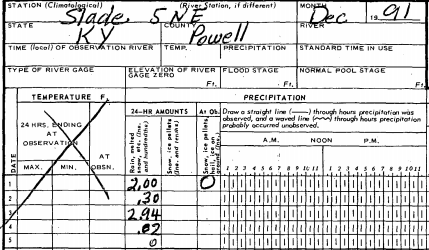 STATION (Climatological) (River Station, if different) MONTH
Slade, 5 NE Dec 1991
STATE COUNTY RIVER
KY Powell
TIME (local) OF OBSERVATION RIVER TEMP. PRECIPITATION STANDARD TIME IN USE
TYPE OF RIVER GAGE ELEVATION OF RIVER GAGE ZERO FLOOD STAGE NORMAL POOL STAGE
Ft. Ft. Ft.
TEMPERATURE F. PRECIPITATION
24-HR AMOUNTS At Ob. Draw a straight line (——) through hours precipitation was
observed, and a waved line (~~~) through hours precipitation
probably occurred unobserved.
24 HRS. ENDING AT OBSERVATION
AT OBSN.
DATE MAX. MIN.
Rain, melted snow, etc. (Ins. and hundredths)
Snow, ice pellets, (Ins. and tenths)
Snow, ice pellets, hail, ice on ground (Ins.)
A.M. NOON P.M.
1 2 3 4 5 6 7 8 9 10 11 1 2 3 4 5 6 7 8 9 10 11
1 2.00 0
2 .30
3 2.94
4 .02
5 0